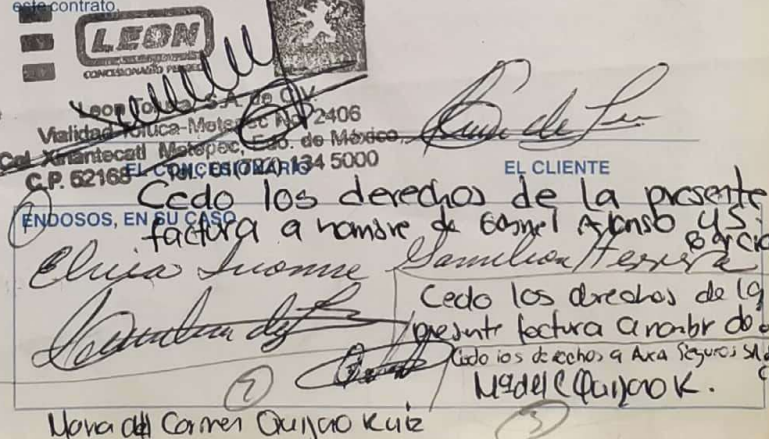 este contrato.
LEON
CONCESIONARIO
Leon Toluca, S.A. de C.V.
Vialidad Toluca-Metepec No. 2406
Col. Xinantecatl Metepec, Edo. de México,
C.P. 52168 Tel. 01(722) 134 5000
EL CONCESIONARIO
EL CLIENTE
Cedo los derechos de la presente
ENDOSOS, EN SU CASO
factura a nombre de Alonso
Elvia Ivonne Herrera
Cedo los derechos de la
presente factura a nombre de
Cedo los derechos a Axa Seguros SA de
Ma del C Quijano R.
2
3
Maria del Carmen Quijano Ruiz